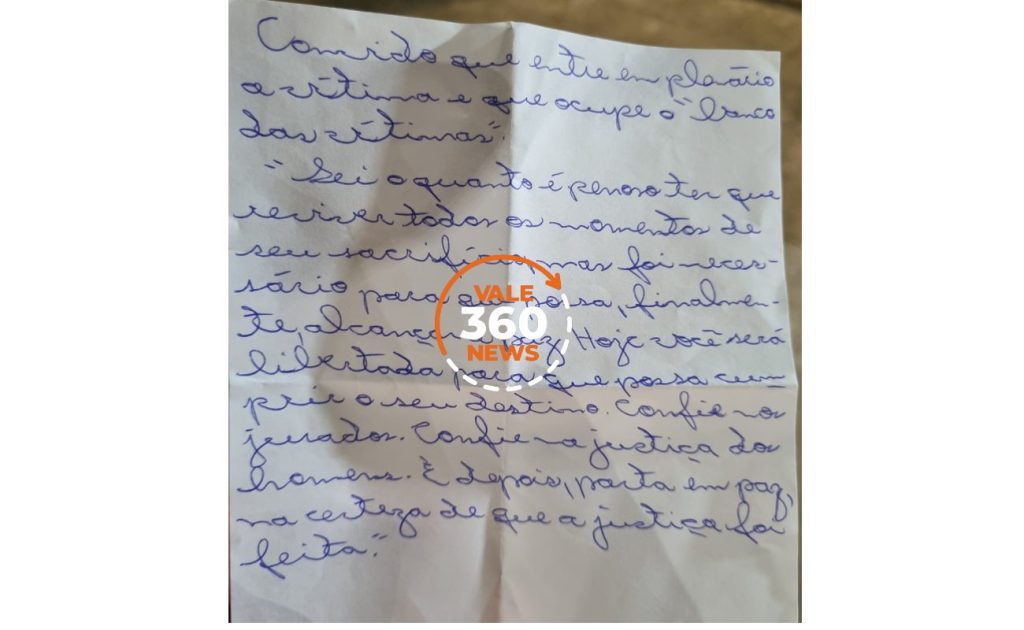 Convido que entre em plenário
a vítima e que ocupe o "banco
das vítimas".
"Sei o quanto é penoso ter que
reviver todos os momentos de
seu sacrifício, mas foi neces-
sário para que possa, finalmen-
te, alcançar a paz. Hoje você será
libertada para que possa cum-
prir o seu destino. Confie nos
jurados. Confie na justiça dos
homens. E depois, parta em paz,
na certeza de que a justiça foi
feita".
VALE
360
NEWS